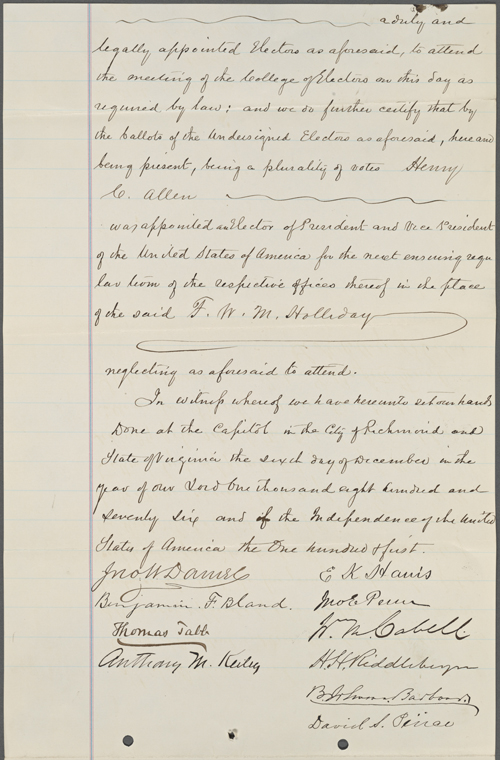 a duly and
legally appointed Electors as aforesaid, to attend
the meeting of the College of Electors on this day as
required by law: and we do further certify that by
the ballots of the Undersigned Electors as aforesaid, here and
being present, being a plurality of votes Henry
C. Allen
was appointed an Elector of President and Vice President
of the United States of America for the next ensuing regu
lar term of the respective offices thereof in the place
of the said F. W. M. Holliday
neglecting as aforesaid to attend.
In witness whereof we have hereunto set our hands
Done at the Capitol in the City of Richmond and
State of Virginia the sixth day of December in the
year of our Lord One thousand eight hundred and
seventy six and of the Independence of the United
States of America the One hundred & first.
Jno W Daniel
E K Harris
Benjamin F. Bland.
Jno E Penn
Thomas Tabb
Wm M Cabell
Anthony M. Keiley
H. H. Riddleberger
Barbour
David S.